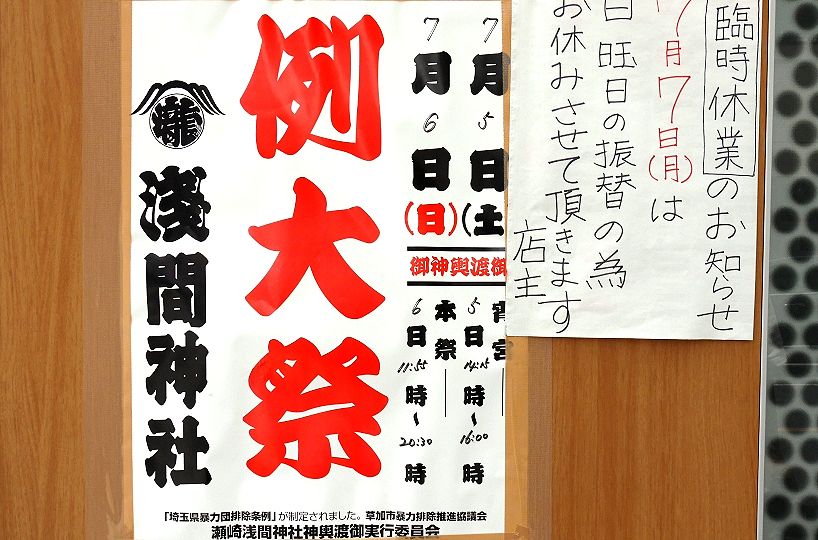 臨時休業のお知らせ
7月7日(月)は
日曜日の振替の為
お休みさせて頂きます
店主
7月5日(土
7月6日(日)
御神輿渡御
宵宮
5日14:15時~16:00時
本祭
6日11:55時~20:30時
例大祭
瀧
浅間神社
「埼玉県暴力団排除条例」が制定されました。草加市暴力排除推進協議会
瀬崎浅間神社神輿渡御実行委員会